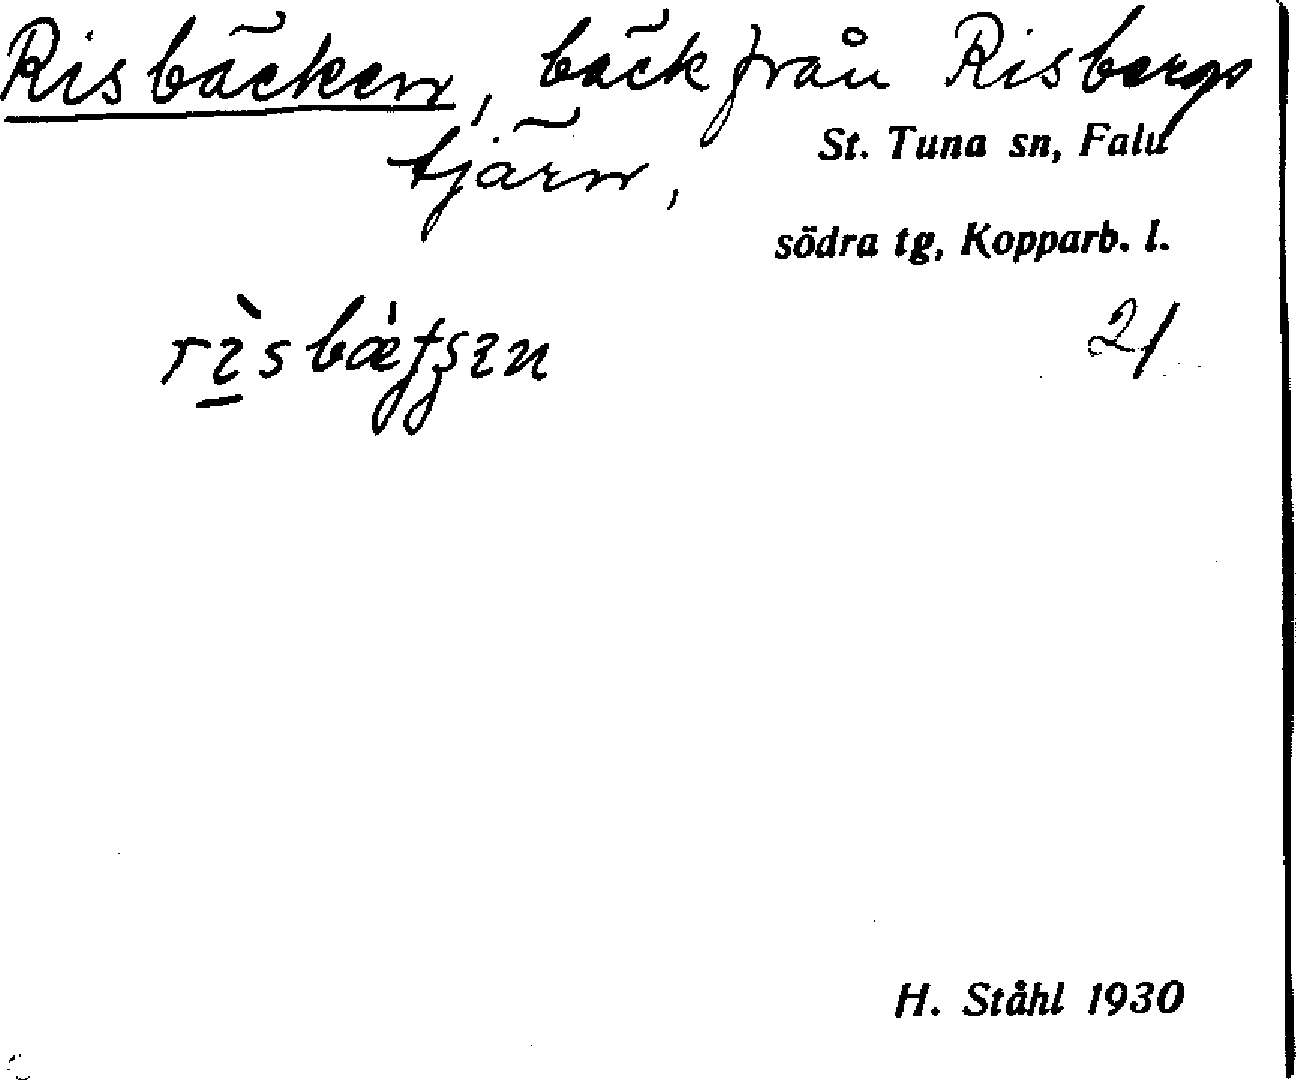 Risbäcken, bäck från Risbergs
tjärn,
St. Tuna sn, Falu
södra tg, Kopparb. l.
21
H. Ståhl 1930